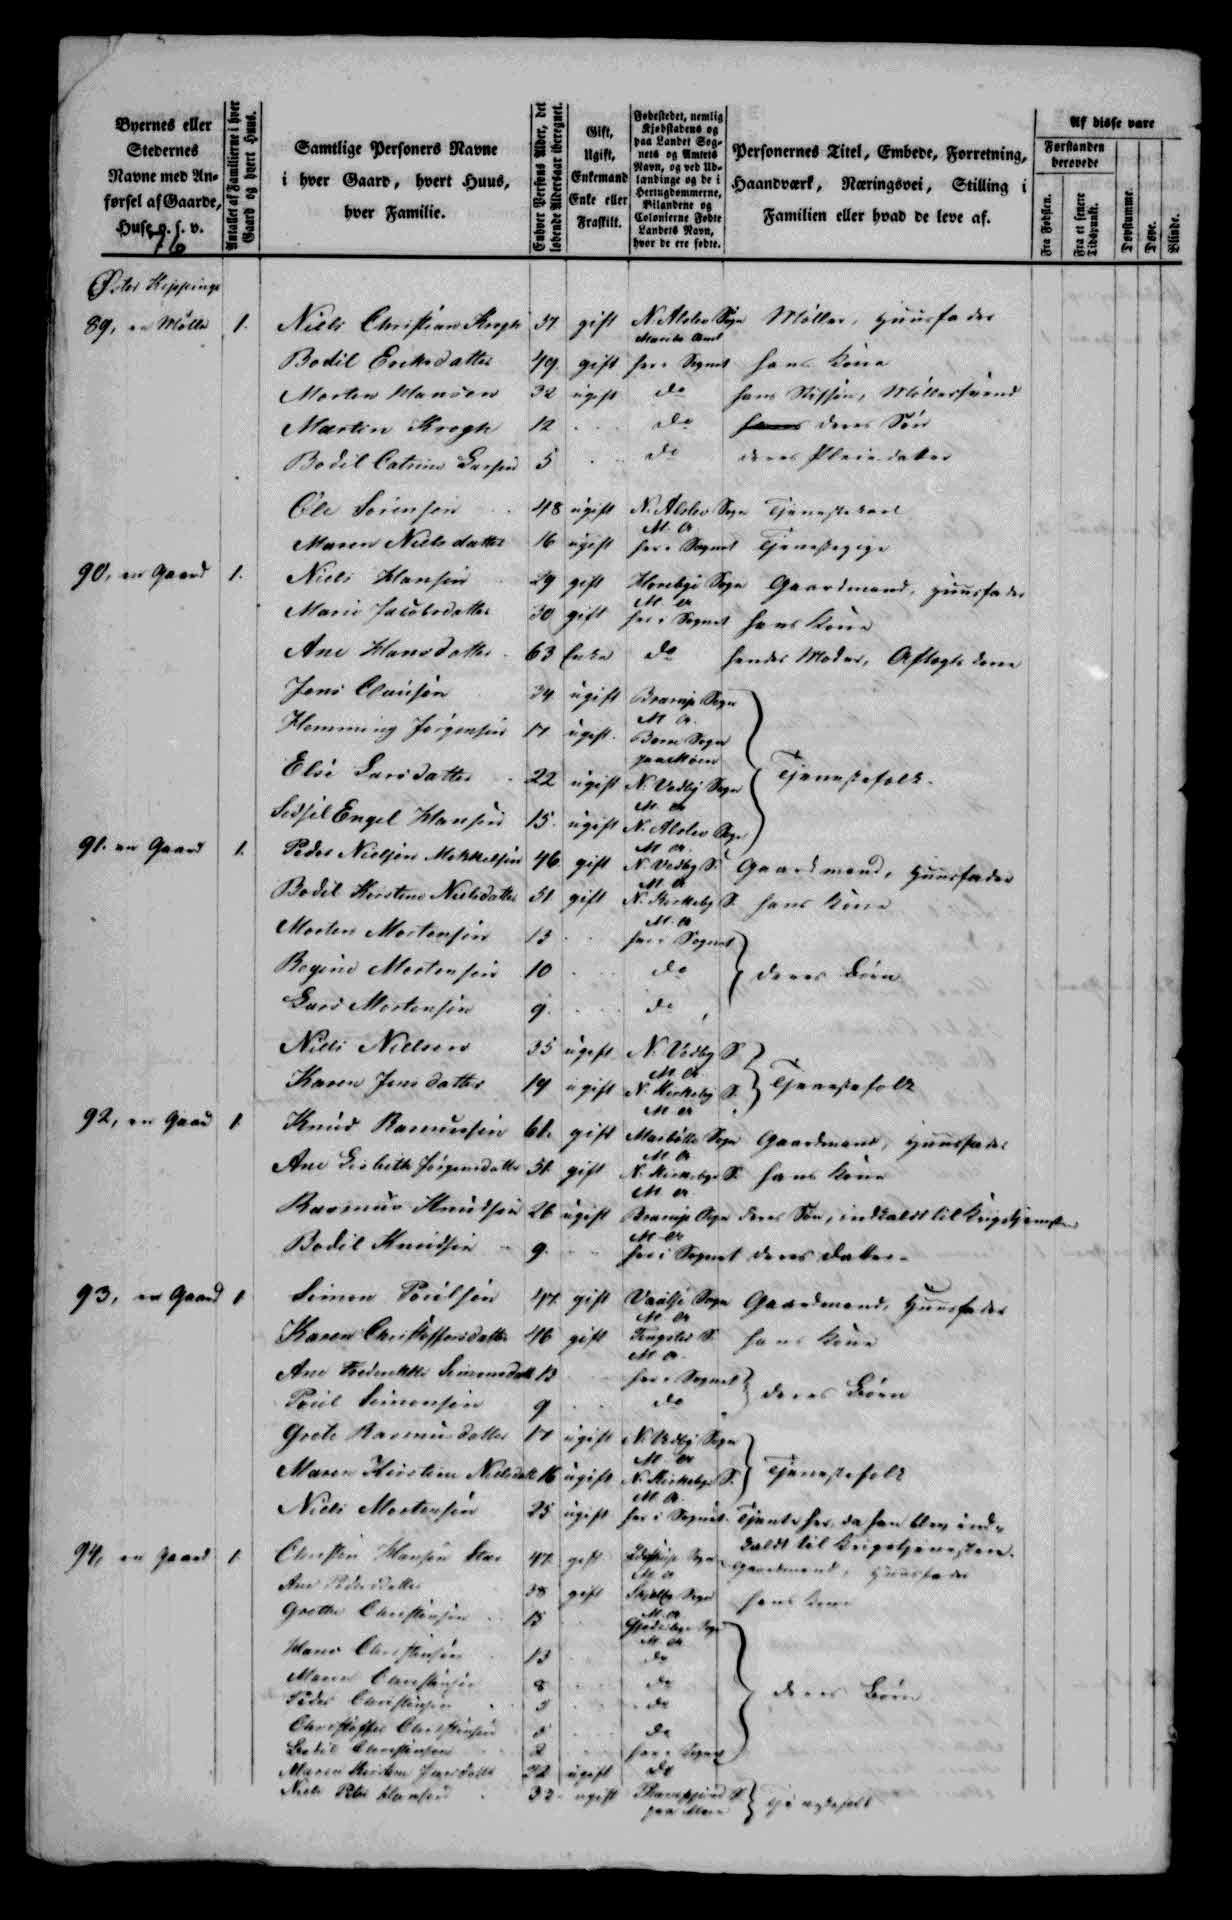 Byernes eller Stedernes Navne med Anførsel af Gaarde, Huse o. s. v.
76
Antallet af Familierne i hver Gaard og hvert Huus.
Samtlige Personers Navne i hver Gaard, hvert Huus, hver Familie.
Enhver Persons Alder, det løbende Aldersaar iberegnet.
Gift, Ugift, Enkemand Enke eller Fraskilt.
Fødestedet, nemlig Kjøbstadens og paa Landet Sognets og Amtets Navn, og ved Udlændinge og de i Hertugdømmerne, Bilandene og Colonierne Fødte Landets Navn, hvor de ere fødte.
Personernes Titel, Embede, Forretning, Haandværk, Næringsvei, Stilling i Familien eller hvad de leve af.
Af disse vare
Forstanden berøvede
Fra Fødslen.
Fra et senere Tidspunkt.
Døvstumme.
Døve.
Blinde.
Øster Kippinge
89, en Mølle 1. Niels Christian Krogh 37 gift N. Alslev Sogn Maribo Amt Møller, Huusfader
Bodil Eriksdatter 49 gift her i Sognet hans Kone
Morten Hansen 32 ugift do hans Stifsøn, Møllersvend
Martin Krogh 12 do deres Søn
Bodil Catrine Larsen 5 do deres Pleiedatter
Ole Sørensen 48 ugift N. Alslev Sogn M. A. Tjenestekarl
Maren Nielsdatter 16 ugift her i Sognet Tjenestepige
90, en Gaard 1. Niels Hansen 29 gift Horebye Sogn M. A. Gaardmand, Huusfader
Marie Jacobsdatter 30 gift her i Sognet hans Kone
Ane Hansdatter 63 Enke do hendes Moder, Aftægtskone
Jens Clausen 34 ugift Brarup Sogn M. A.
Hemming Jørgensen 17 ugift Borre Sogn paa Møen
Else Larsdatter 22 ugift N. Vedby Sogn M. A. Tjenestefolk.
Sidsel Engel Hansen 15 ugift N. Alslev Sogn M. A.
91. en Gaard 1. Peder Nielsen Mekkelsen 46 gift N. Vedby S. M. A. Gaardmand, Huusfader
Bodil Kirstine Nielsdatter 51 gift N. Kirkeby S. M. A. hans Kone
Morten Mortensen 13 her i Sognet
Regine Mortensen 10 do deres Børn
Lars Mortensen 9. do
Niels Nielsen 35 ugift N. Vedby S. M. A.
Karen Jensdatter 19 ugift N. Kirkeby S. M. A. Tjenestefolk
92, en Gaard 1. Knud Rasmussen 61. gift Maribølle Sogn M. A. Gaardmand, Huusfader
Ane Lisbeth Jørgensdatter 51 gift N. Kirkebye S. M. A. hans Kone
Rasmus Knudsen 26 ugift Brarup Sogn M. A. deres Søn, indkaldt til Krigstjenesten
Bodil Knudsen 9. her i Sognet deres Datter
93, en Gaard 1 Simon Poulsen 47 gift Vaalse Sogn M. A. Gaardmand, Huusfader
Karen Christoffersdatter 46 gift Tingsted S. M. A. hans Kone
Ane Frederikke Simonsdatt 13 her i Sognet
Poul Simonsen 9 do deres Børn
Grete Rasmusdatter 17 ugift N. Vedby Sogn M. A.
Maren Kirstine Nielsdatt 16 ugift N. Kirkebye S. M. A. Tjenestefolk
Niels Mortensen 25 ugift her i Sognet Tjente her, da han blev indkaldt til Krigstjenesten.
94, en Gaard 1. Christen Hansen 47 gift Sogn M. A. Gaardmand, Huusfader
Ane Pedersdatter 38 gift Sogn M. A. hans Kone
Grethe Christensen 15 Sogn M. A.
Hans Christensen 13 do
Maren Christensen 8 do deres Børn
Peder Christensen do
Christoffer Christensen do
Bodil Christensen 2 her i Sognet
Maren Kirstine 22 ugift do
Niels Peder Hansen 32 ugift S. paa Møen Tjenestefolk